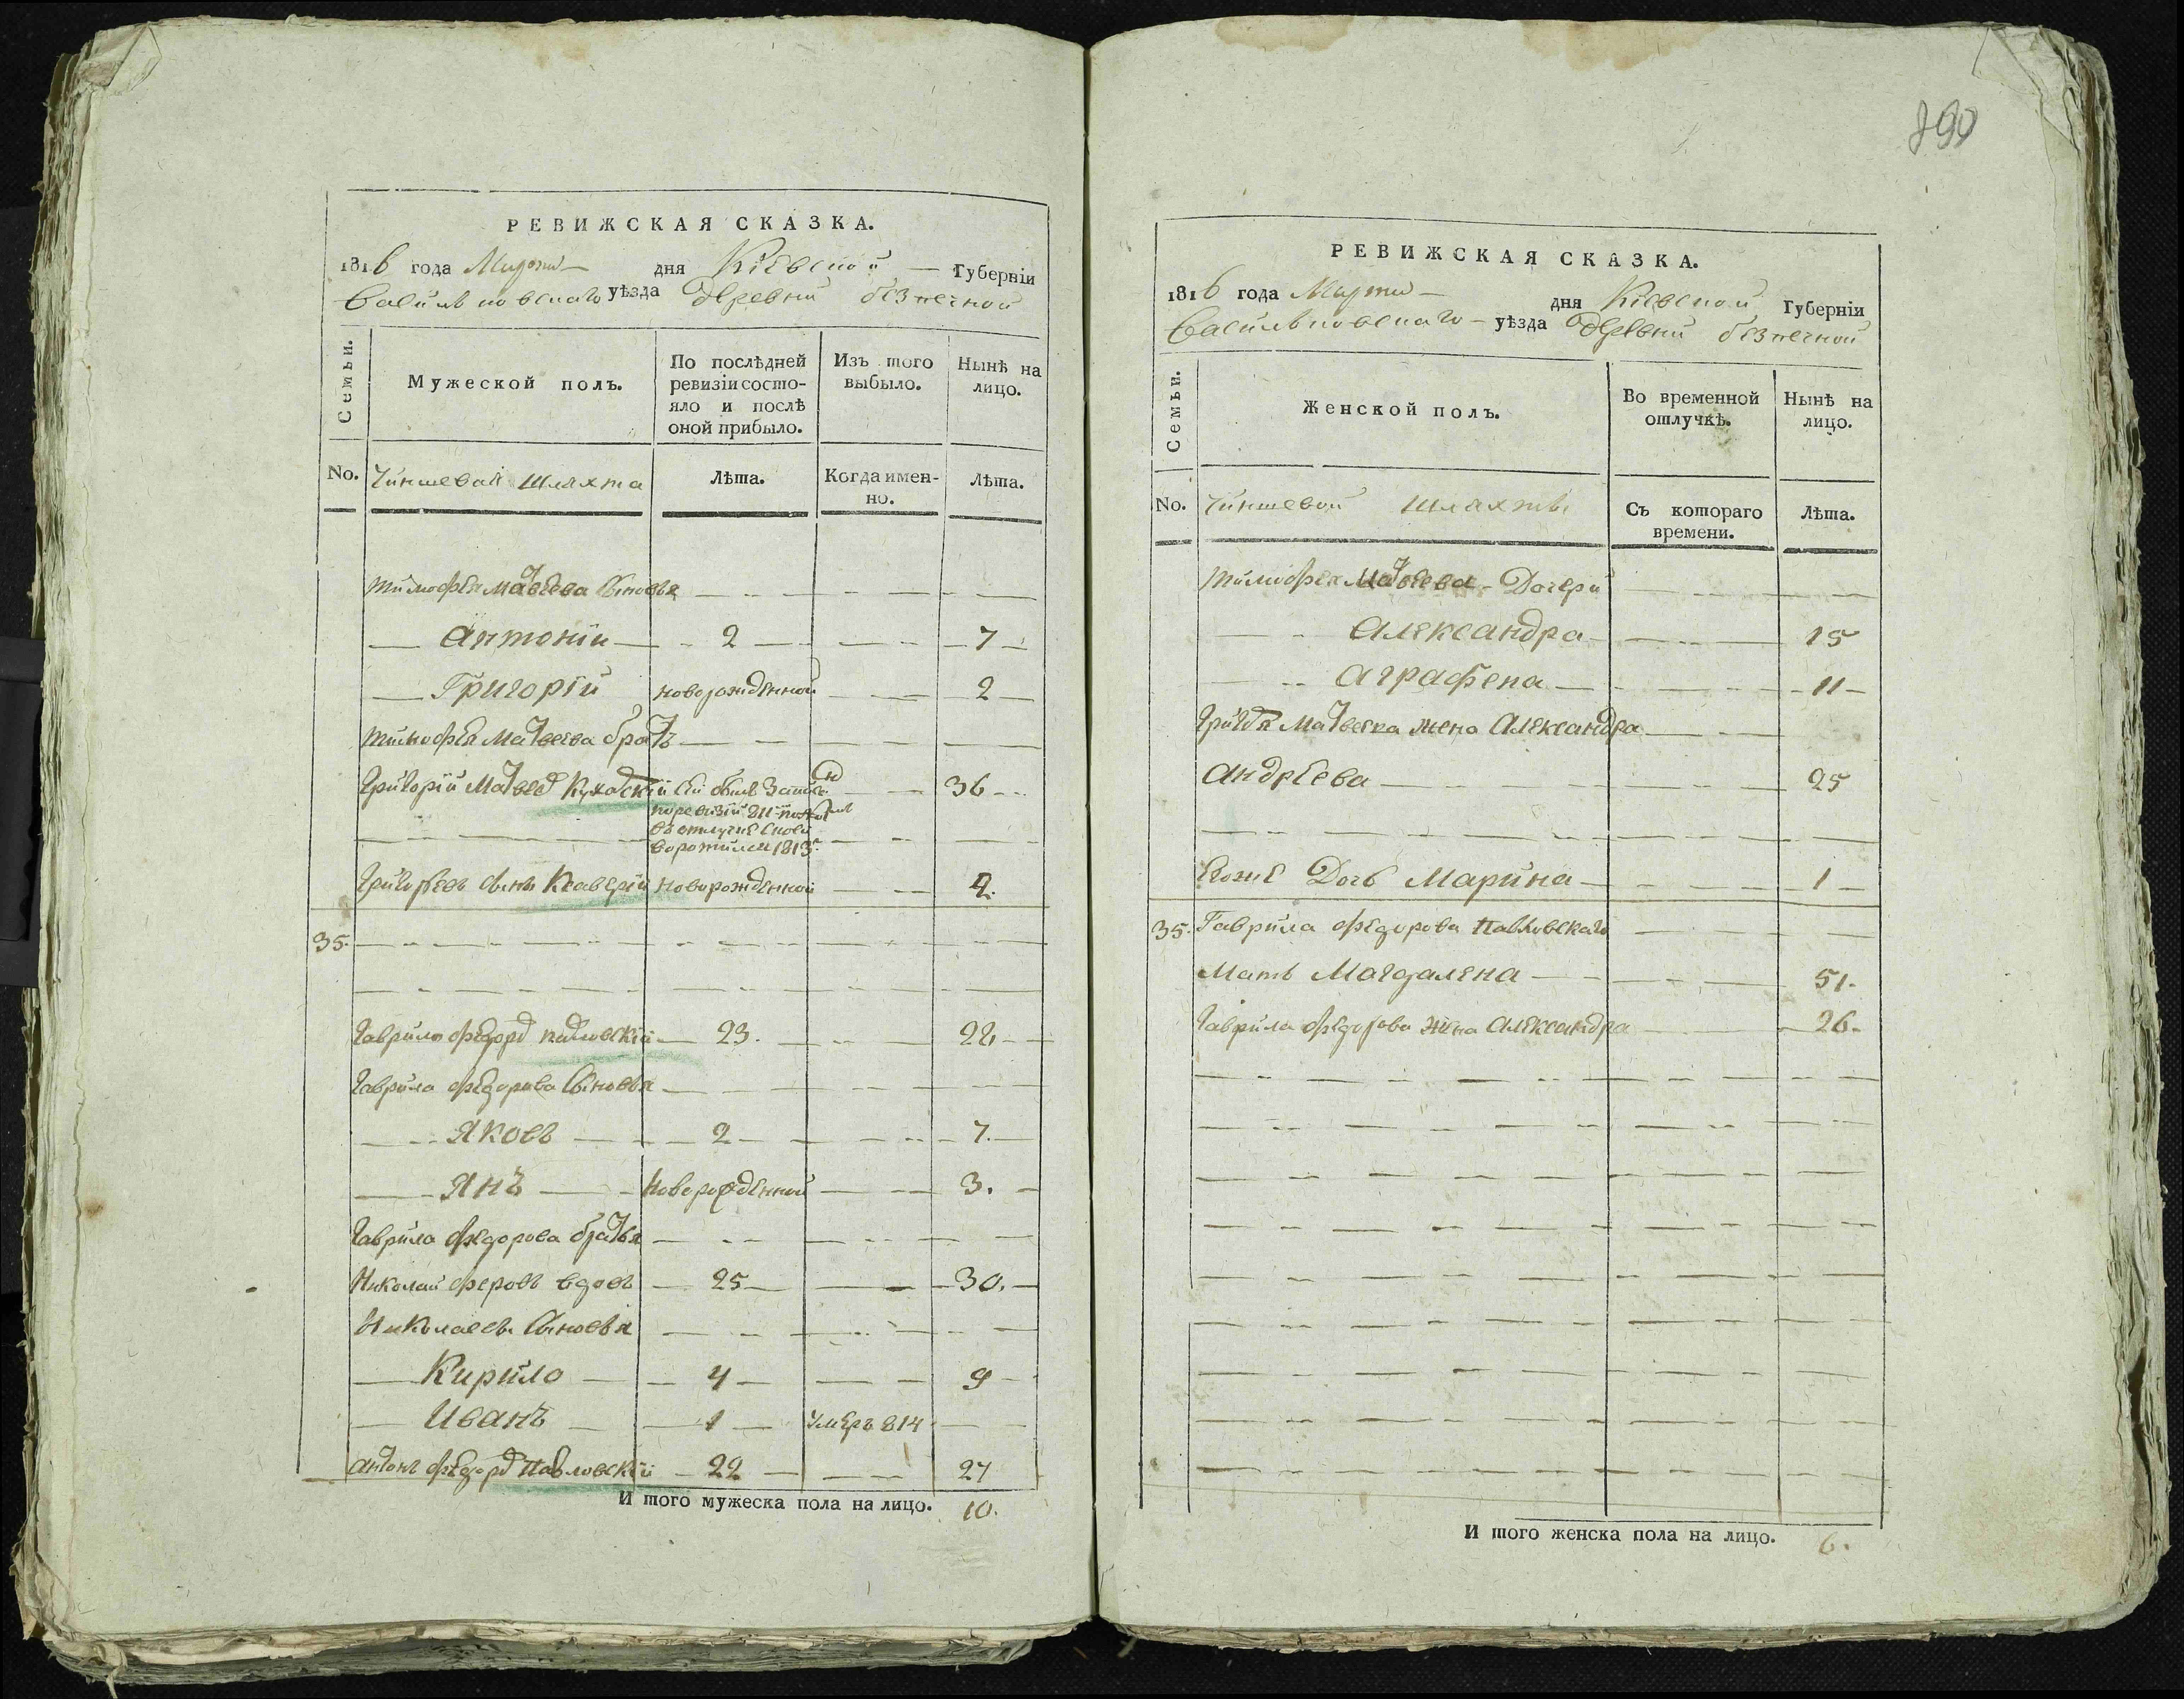 РЕВИЖСКАЯ СКАЗКА.
1816 года Марта дня Кіевской Губерніи
Васильковскаго уѣзда деревни безпечной
Семьи.
Мужеской полъ.
По послѣдней ревизіи состояло и послѣ оной прибыло.
Изъ того выбыло.
Нынѣ на лицо.
No. Чиншевая шляхта
Лѣта.
Когда именно.
Лѣта.
Тимофея Матвеева сыновья
Антоній 2 7
Григорій новорожденной 2
Тимофея Матвеева братъ
Григорій Матвеев 36
по ревизіи 811
въ отлучке
воротился 1813
Григорьевъ сынъ Ксаверій новорожденной
35.
Гаврило Федоров Павловскій 23.
Гаврила Федорова сыновья
Яковъ 2 7.
Янъ Новорожденной 3.
Гаврила Федорова братья
Николай вдовъ 25 30.
Николаевы сыновья
Кирило 4 9
Иванъ 1 умеръ 814
Антонъ Федоров Павловскій 22 27
И того мужеска пола на лицо. 10.
РЕВИЖСКАЯ СКАЗКА.
1816 года Марта дня Кіевской Губерніи
Васильковскаго уѣзда деревни безпечной
Семьи.
Женской полъ.
Во временной отлучкѣ.
Нынѣ на лицо.
No. Чиншевой шляхты
Съ котораго времени.
Лѣта.
Тимофея Матвеева Дочери
Александра 15
Аграфена 11
жена Александра
Андреева 25
Дочь Марина 1
35. Гаврила Федорова Павловскаго
Мать Магдалена 51.
Гаврила Федорова жена Александра 26.
И того женска пола на лицо. 6.